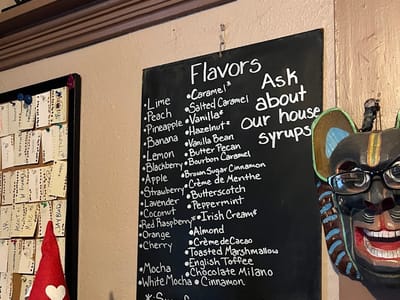 Flavors
•Lime
•Peach
•Pineapple
•Banana
•Lemon
•Blackberry
•Apple
•Strawberry
•Lavender
•Coconut
•Red Raspberry*
•Orange
•Cherry
•Mocha
•White Mocha
•Caramel*
•Salted Caramel
•Vanilla*
•Hazelnut*
•Vanilla Bean
•Butter Pecan
•Bourbon Caramel
•Brown Sugar Cinnamon
•Crème de Menthe
•Butterscotch
•Peppermint
•Irish Cream*
•Almond
•Crème de Cacao
•Toasted Marshmallow
•English Toffee
•Chocolate Milano
•Cinnamon
Ask
about
our house
syrups